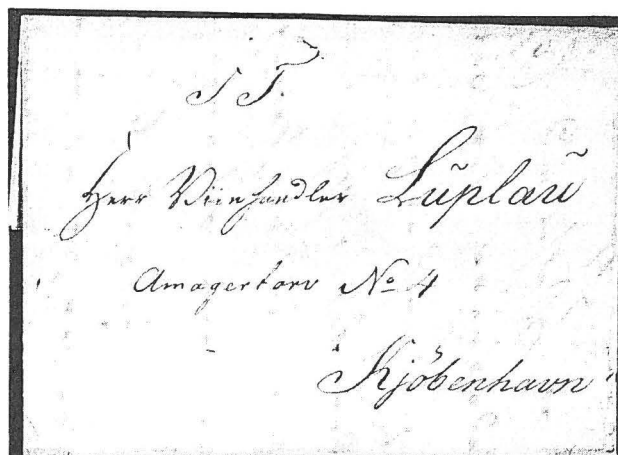 S T.
Herr Viinhandler Lüplau
Amagertorv No 4
Kjöbenhavn